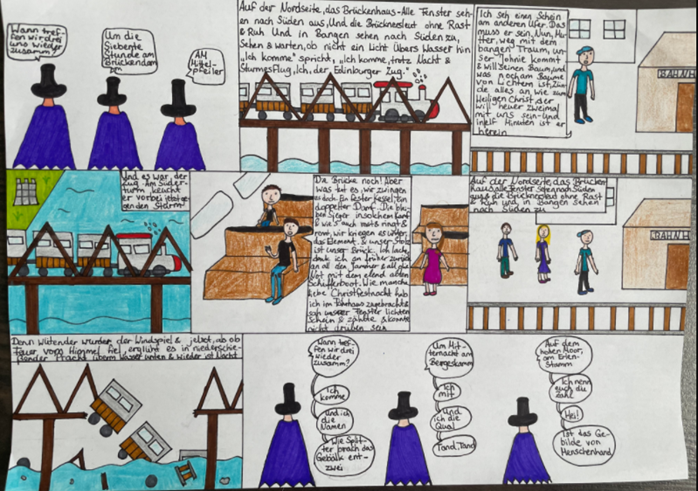 Wann tref-
fen wir drei
uns wieder
zusamm?
Um die
Siebente
Stunde am
Brückendamm
Am
Mittel-
pfeiler
Auf der Nordseite, das Brückenhaus-Alle Fenster seh-
en nach süden aus, und die Brücknersleut ohne Rast
& Ruh und in Bangen sehen nach Süden zu,
Sehen & warten, ob nicht ein Licht übers Wasser hin
"ich komme" spricht, "ich komme, trotz Nacht &
Sturmesflug, Ich, der Edinburger Zug.
Ich seh einen Schein
am anderen Ufer. Das
muss er sein. Nun, Mu-
tter, weg mit dem
bangen Traum, un-
ser Johnie kommt
& will seinen Baum, und
was noch am Baume
von Lichtern ist, Zün
de alles an wie zum
Heiligen Christ, der
will heuer zweimal
mit uns sein- und
in elf Minuten ist er
herein
BAHNH
Und es war der
Zug. Am Süder-
turm keucht
er vorbei jetzt ge-
gen den Sturm
Die Brücke noch! Aber
was tut es, wir zwingen
es doch. Ein fester Kessel, ein
doppelter Dampf, Die blei-
ben Sieger in solchem Kampf
& wie's auch rast & ringt &
rennt, wir kriegen es unter,
das Element, & unser Stolz
ist unser Brück. Ich lache,
denk ich an früher zurück
an all den Jammer & all die
Not mit dem elend alten
Schifferboot. Wie manche
liebe Christfestnacht hab
ich im Fährhaus zugebracht &
sah unserer Fenster lichten
Schein & zählte & konnte
nicht drüben sein
Auf der Nordseite, das Brücken
haus, alle Fenster sehen nach Süden
aus & die Brücknersleut ohne Rast
& Ruh und in Bangen sehen
nach Süden zu
BAHNH
Denn wütender wurde der Windspiel & jetzt, als ob
Feuer vom Himmel fiel, erglüht es in niederschie-
ßender Pracht überm Wasser unten & wieder ist Nacht
Wann tref-
fen wir drei
wieder
zusamm?
Ich
komme
Und ich
die
Namen
Wie Split-
ter brach das
Gebälk ent-
zwei
Um Mit-
ternacht am
Bergeskamm
Ich
mit
Und
ich die
Qual
Tand, Tand
Auf dem
hohen Moor,
am Erlen-
stamm
Ich nenn
euch die
Zahl
Hei!
Ist das Ge-
bilde von
Menschenhand